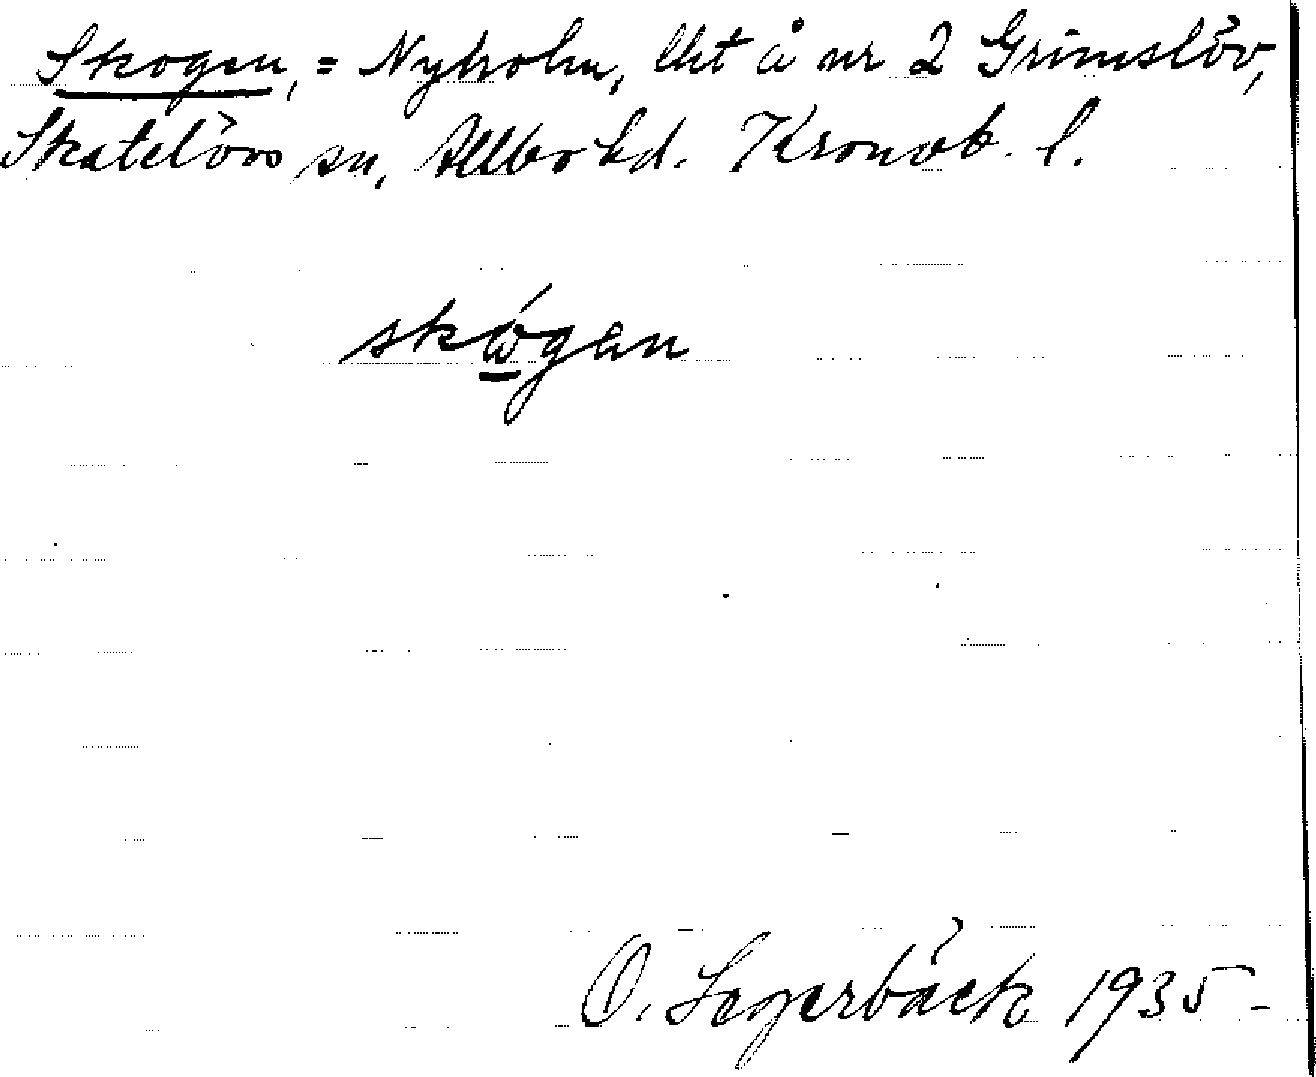 Skogen, = Nyholm, lht å nr 2 Grimslöv,
Skatelövs sn, Allbo hd. Kronob. l.
skωgan
O. Segerbäck 1935